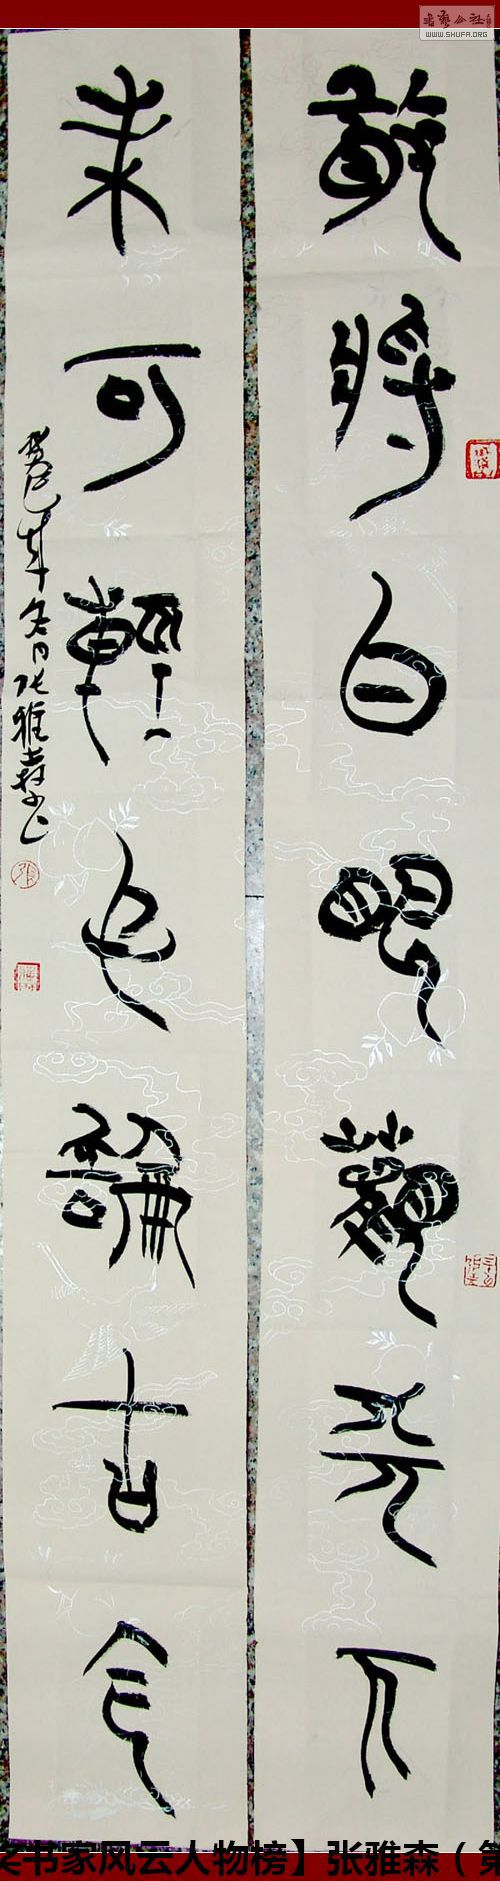 书艺公社
WWW.SHUFA.ORG
敢將白眼觀天下
未可輕心論古今
癸巳年冬月张雅森
奖书家风云人物榜】张雅森（第